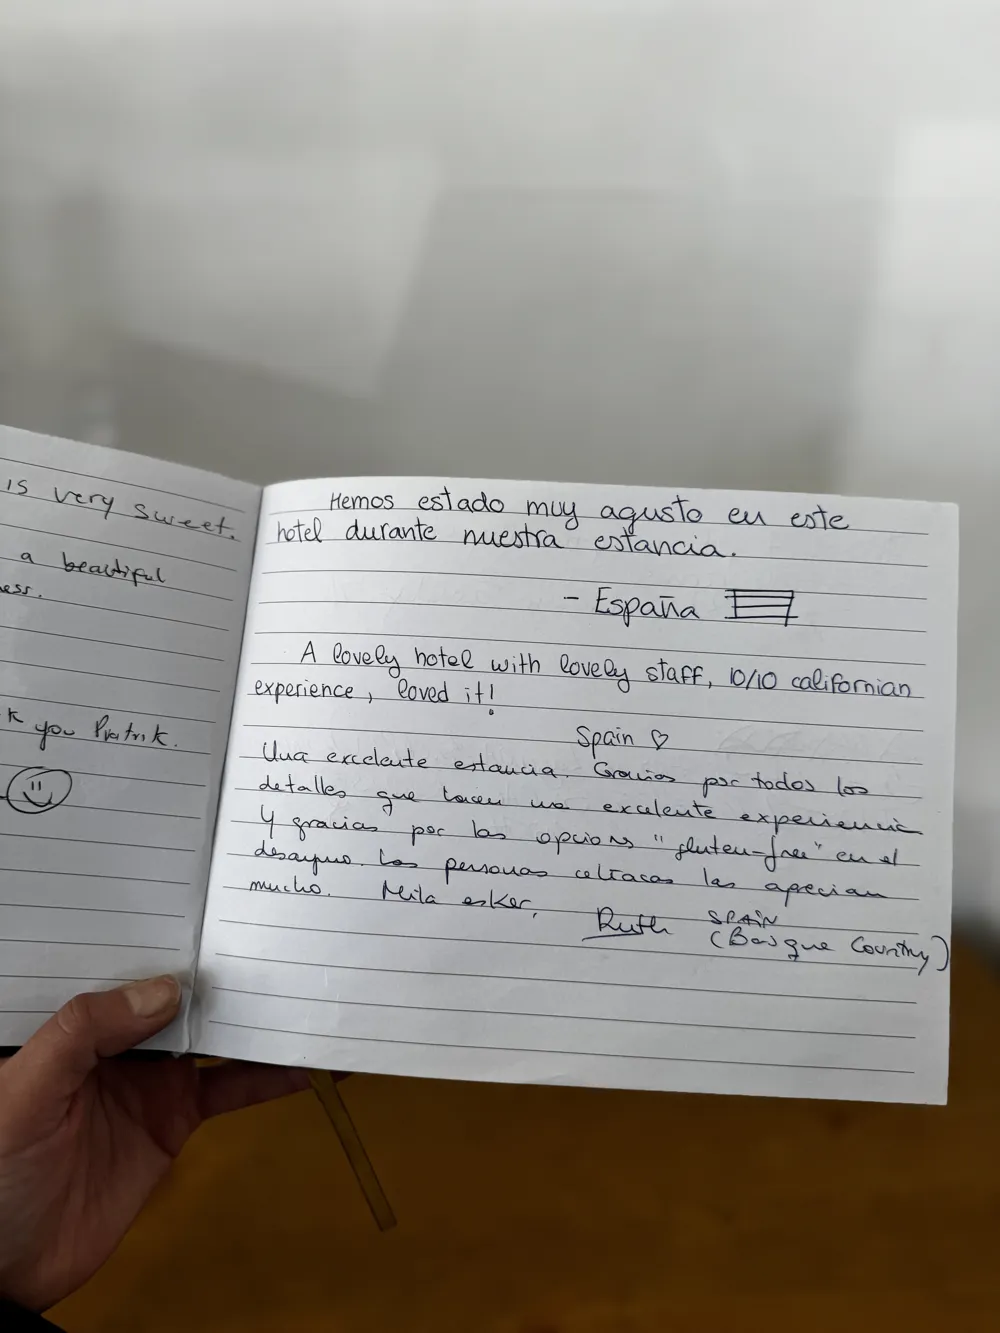 is very sweet.
a beautiful
ess.
k you Patrik.
Hemos estado muy agusto en este
hotel durante nuestra estancia.
- España
A lovely hotel with lovely staff, 10/10 californian
experience, loved it!
Spain ♡
Una excelente estancia. Gracias por todos los
detalles que hacen una excelente experiencia
Y gracias por las opciones "gluten-free" en el
desayuno. Las personas celiacas las aprecian
mucho. Mila esker,
Ruth SPAIN
(Basque Country)